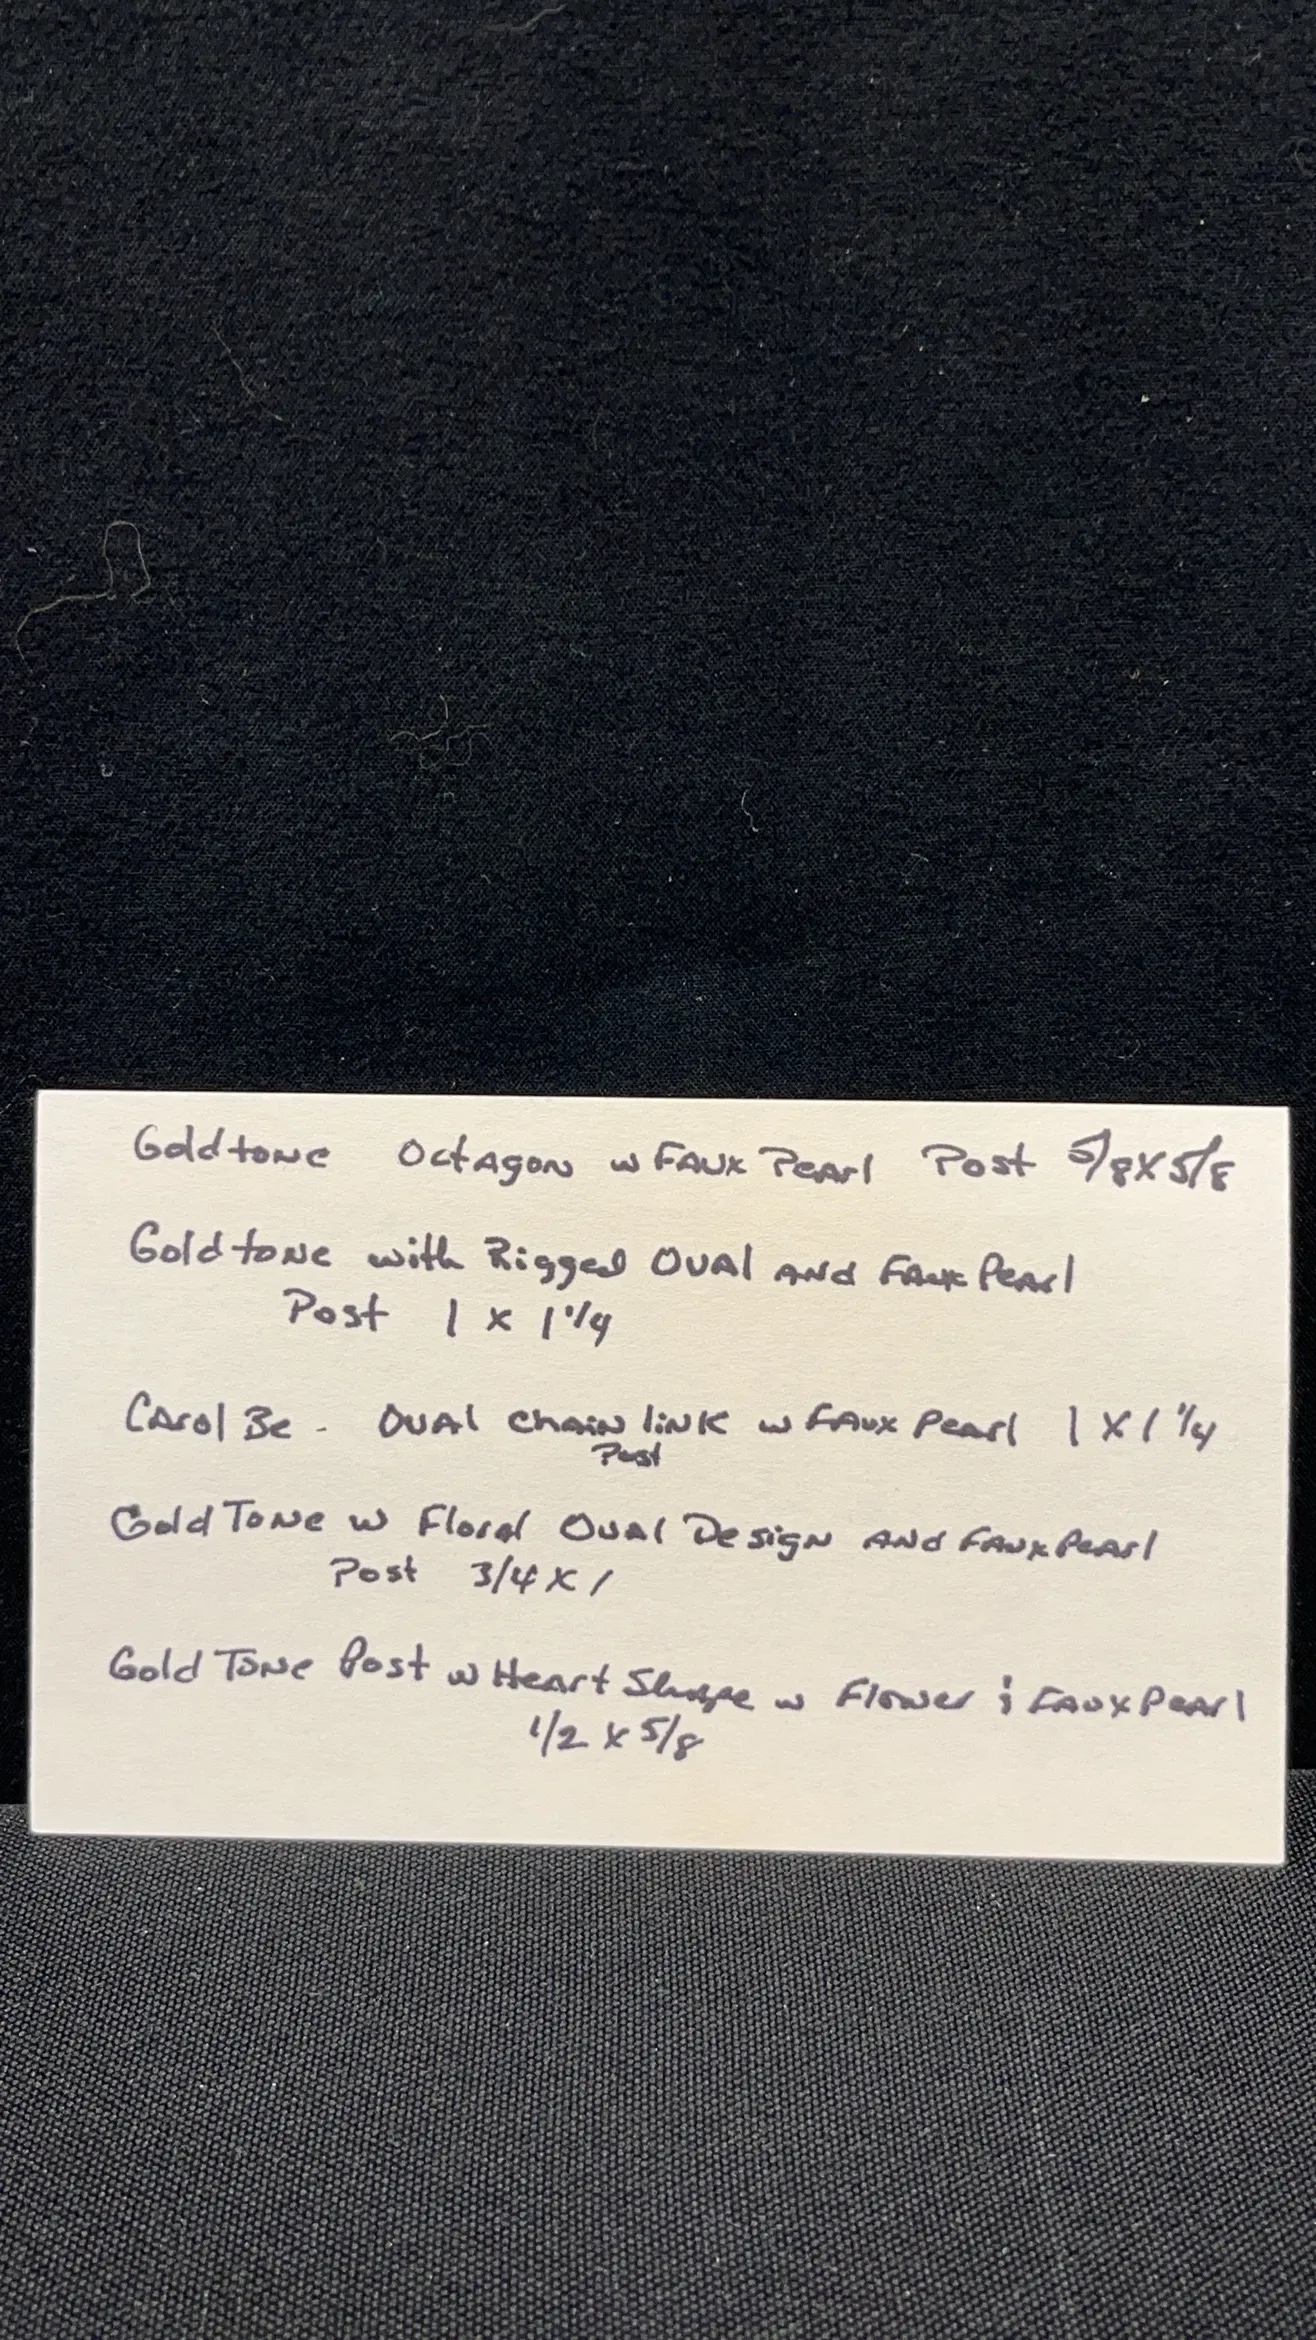 Goldtone Octagon w Faux Pearl Post 5/8 X 5/8
Goldtone with Rigged Oval and Faux Pearl
Post 1 x 1 1/4
Carol Be - Oval chain link w Faux Pearl 1 X 1 1/4
Post
Gold Tone w Floral Oval Design and Faux Pearl
Post 3/4 X 1
Gold Tone Post w Heart Shape w Flower & Faux Pearl
1/2 X 5/8